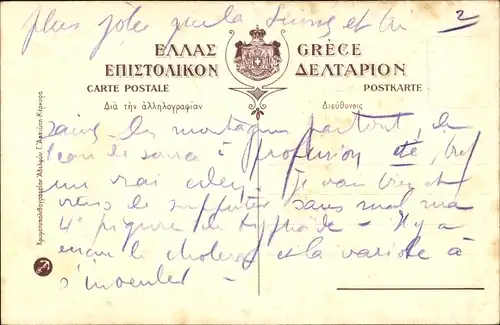 plus jolie que la Suisse et
2
ΕΛΛΑΣ GRÈCE
ΕΠΙΣΤΟΛΙΚΟΝ ΔΕΛΤΑΡΙΟΝ
CARTE POSTALE POSTKARTE
Διὰ τὴν ἀλληλογραφίαν Διεύθυνσις
des montagnes partout, de
l'eau de source à profusion été,
un vrai Je vais bien et
viens de supporter sans mal ma
4e piqure de typhoïde - Il y a
encore le cholera et la variole à
s'inventer -
Χρωματολιθογραφεῖον Ἀδελφῶν Γ. Ἀσπιώτη-Κέρκυρα.